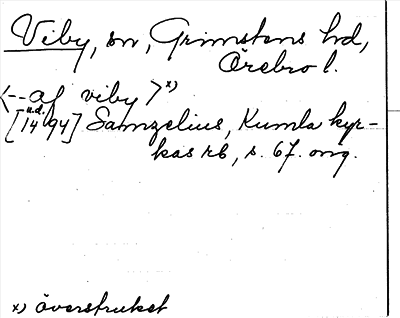 Viby, sn, Grimstens hd,
Örebro l.
<-- af viby >x)
u.d.
[1494] Samzelius, Kumla kyr-
kas rb, s. 67. orig.
x) överstruket